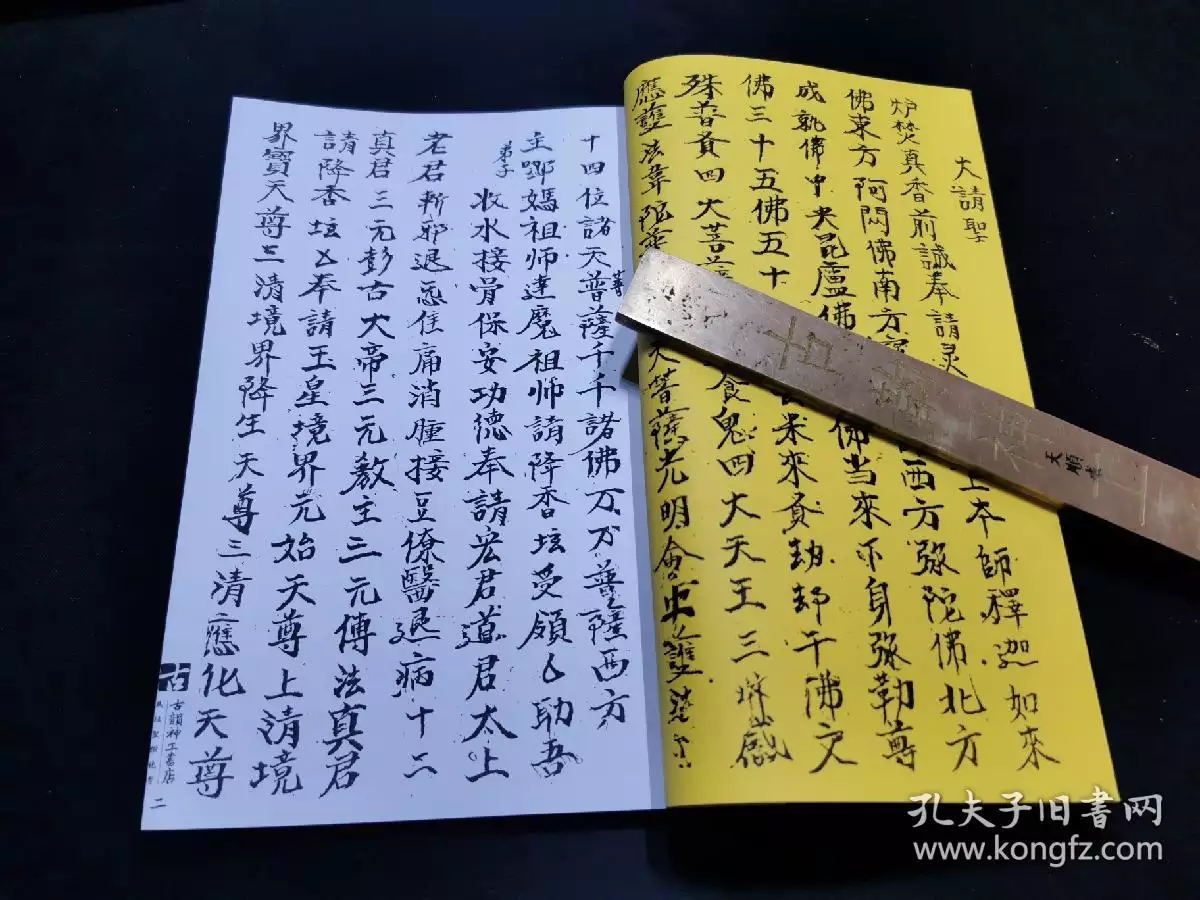 大請聖
炉焚真香前誠奉請灵上本師釋迦如來
佛東方阿閦佛南方寳西方弥陀佛北方
成就佛中央昆盧佛佛当來下身弥勒尊
佛三十五佛五十來來賁劫却千佛文
殊普賁四大菩食鬼四大天王三堆感
應護法韋陀天菩薩光明會上護法
十四位諸天普薩菩千千諸佛万万普薩西方
主耶媽祖师達魔祖师請降香坛受領助吾
弟子
收水接骨保安功德奉請宏君道君太上
老君斬邪退惡住痛消腫接豆僚醫退病十二
真君三元彭古大帝三元教主三元傅法真君
請降香坛奉請玉皇境界元始天尊上清境
界寳天尊三清境界降生天尊三清應化天尊
古韻神工書店
二
天順
孔夫子旧书网
www.kongfz.com